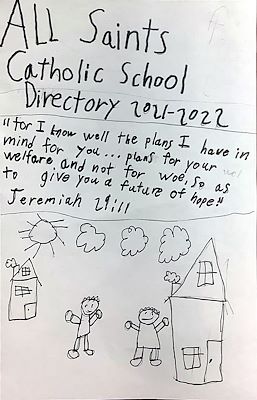 ALL Saints
Catholic School
Directory 2021-2022
"for I know well the plans I have in
mind for you... plans for your
welfare and not for woe, so as
to give you a future of hope."
Jeremiah 29:11